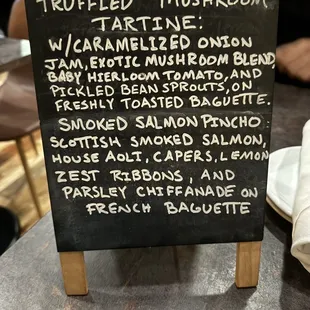 TRUFFLED MUSHROOM
TARTINE:
W/CARAMELIZED ONION
JAM, EXOTIC MUSHROOM BLEND,
BABY HIERLOOM TOMATO, AND
PICKLED BEAN SPROUTS, ON
FRESHLY TOASTED BAGUETTE.
SMOKED SALMON PINCHO
SCOTTISH SMOKED SALMON,
HOUSE AOLI, CAPERS, LEMON
ZEST RIBBONS, AND
PARSLEY CHIFFANADE ON
FRENCH BAGUETTE